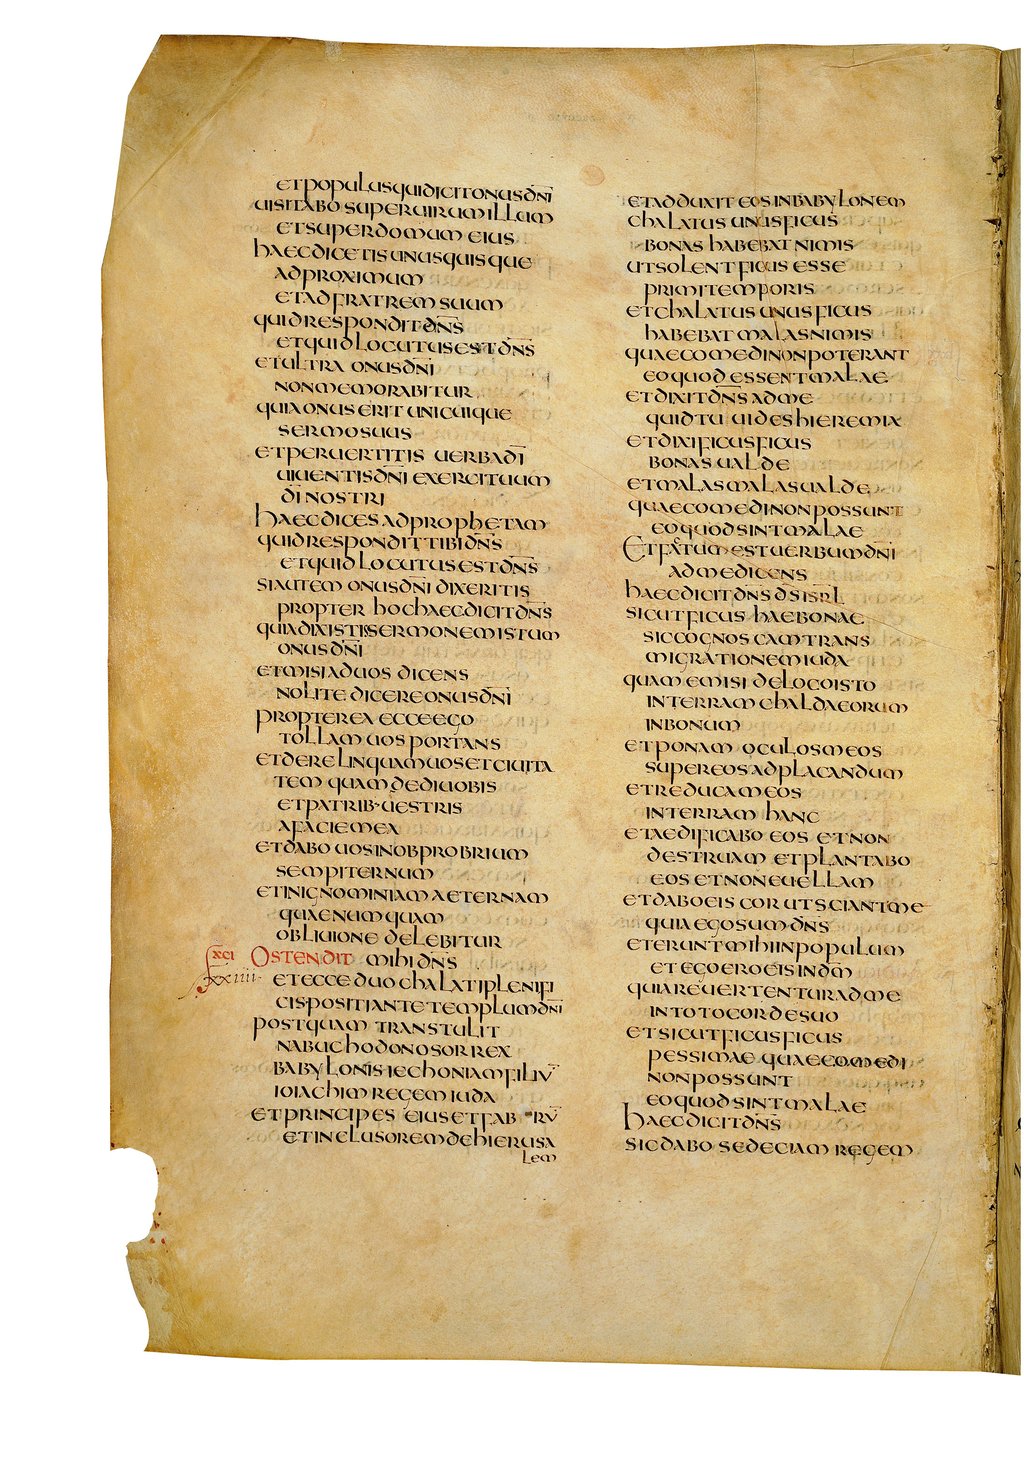 et populus qui dicit onus dn̄i
uisitabo super uirum illum
et super domum eius
haec dicetis unusquisque
ad proximum
et ad fratrem suum
quid respondit dn̄s
et quid locutus est dn̄s
et ultra onus dn̄i
non memorabitur
quia onus erit unicuique
sermo suus
et peruertitis uerba dī
uiuentis dn̄i exercituum
dī nostri
haec dices ad prophetam
quid respondit tibi dn̄s
et quid locutus est dn̄s
si autem onus dn̄i dixeritis
propter hoc haec dicit dn̄s
quia dixistis sermonem istum
onus dn̄i
et misi ad uos dicens
nolite dicere onus dn̄i
propterea ecce ego
tollam uos portans
et derelinquam uos et ciuita
tem quam dedi uobis
et patrib· uestris
a facie mea
et dabo uos in obprobrium
sempiternum
et in ignominiam aeternam
quae numquam
obliuione delebitur
xci Ostendit mihi dn̄s
xxiiii et ecce duo chalati pleni fi
cis positi ante templum dn̄i
postquam transtulit
nabuchodonosor rex
babylonis iechoniam filiū
ioiachim regem iuda
et principes eius et fabrū
et inclusorem de hierusa
lem
et adduxit eos in babylonem
chalatus unus ficus
bonas habebat nimis
ut solent ficus esse
primi temporis
et chalatus unus ficus
habebat malas nimis
quae comedi non poterant
eo quod essent malae
et dixit dn̄s ad me
quid tu uides hieremia
et dixi ficus ficus
bonas ualde
et malas malas ualde
quae comedi non possunt
eo quod sint malae
Et factum est uerbum dn̄i
ad me dicens
haec dicit dn̄s d̄s isrl
sicut ficus hae bonae
sic cognoscam trans
migrationem iuda
quam emisi de loco isto
in terram chaldaeorum
in bonum
et ponam oculos meos
super eos ad placandum
et reducam eos
in terram hanc
et aedificabo eos et non
destruam et plantabo
eos et non euellam
et dabo eis cor ut sciant me
quia ego sum dn̄s
et erunt mihi in populum
et ego ero eis in dm̄
quia reuertentur ad me
in toto corde suo
et sicut ficus ficus
pessimae quae comedi
non possunt
eo quod sint malae
haec dicit dn̄s
sic dabo sedeciam regem